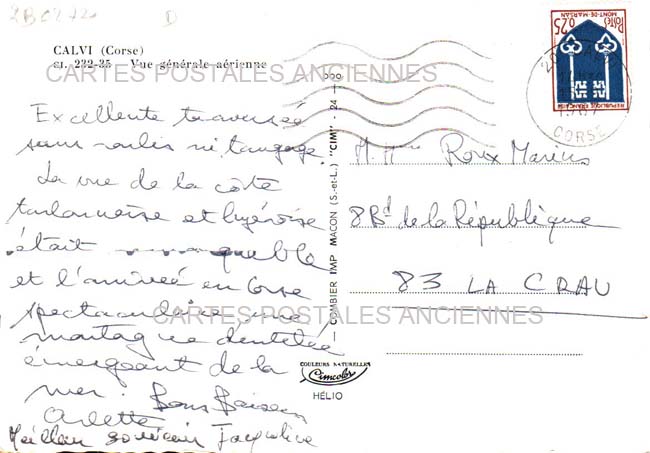 2B02720
D
CALVI (Corse)
cr. 232-35 Vue générale aérienne
CARTES POSTALES ANCIENNES
Excellente traversée
sans roulis ni tangage
La vue de la côte
toulonnaise et hyéroise
était remarquable
et l'arrivée en Corse
spectaculaire une
montagne dentelée
émergeant de la
mer. Bons Baisers
Arlette
Meilleur souvenir Jacqueline
CARTES POSTALES ANCIENNES
COMBIER IMP MACON (S.-et-L.) "CIM" - 24 -
COULEURS NATURELLES
Cimcolor
HÉLIO
0,25
POSTES
MONT-DE-MARSAN
REPUBLIQUE FRANÇAISE
CORSE
M. Mme Roux Marius
8 Bd de la République
83 LA CRAU